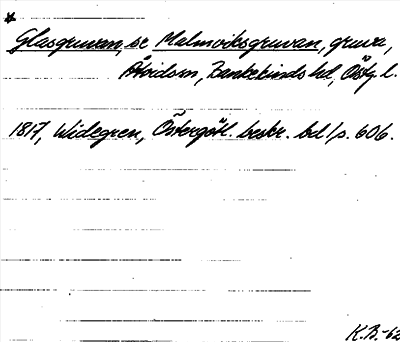 *
Glasgruvan, se Malmviksgruvan, gruva,
Åtvidsn, Bankekinds hd, Östg. l.
1817, Widegren, Östergötl. beskr. bd 1 s. 606.
K.B. -62